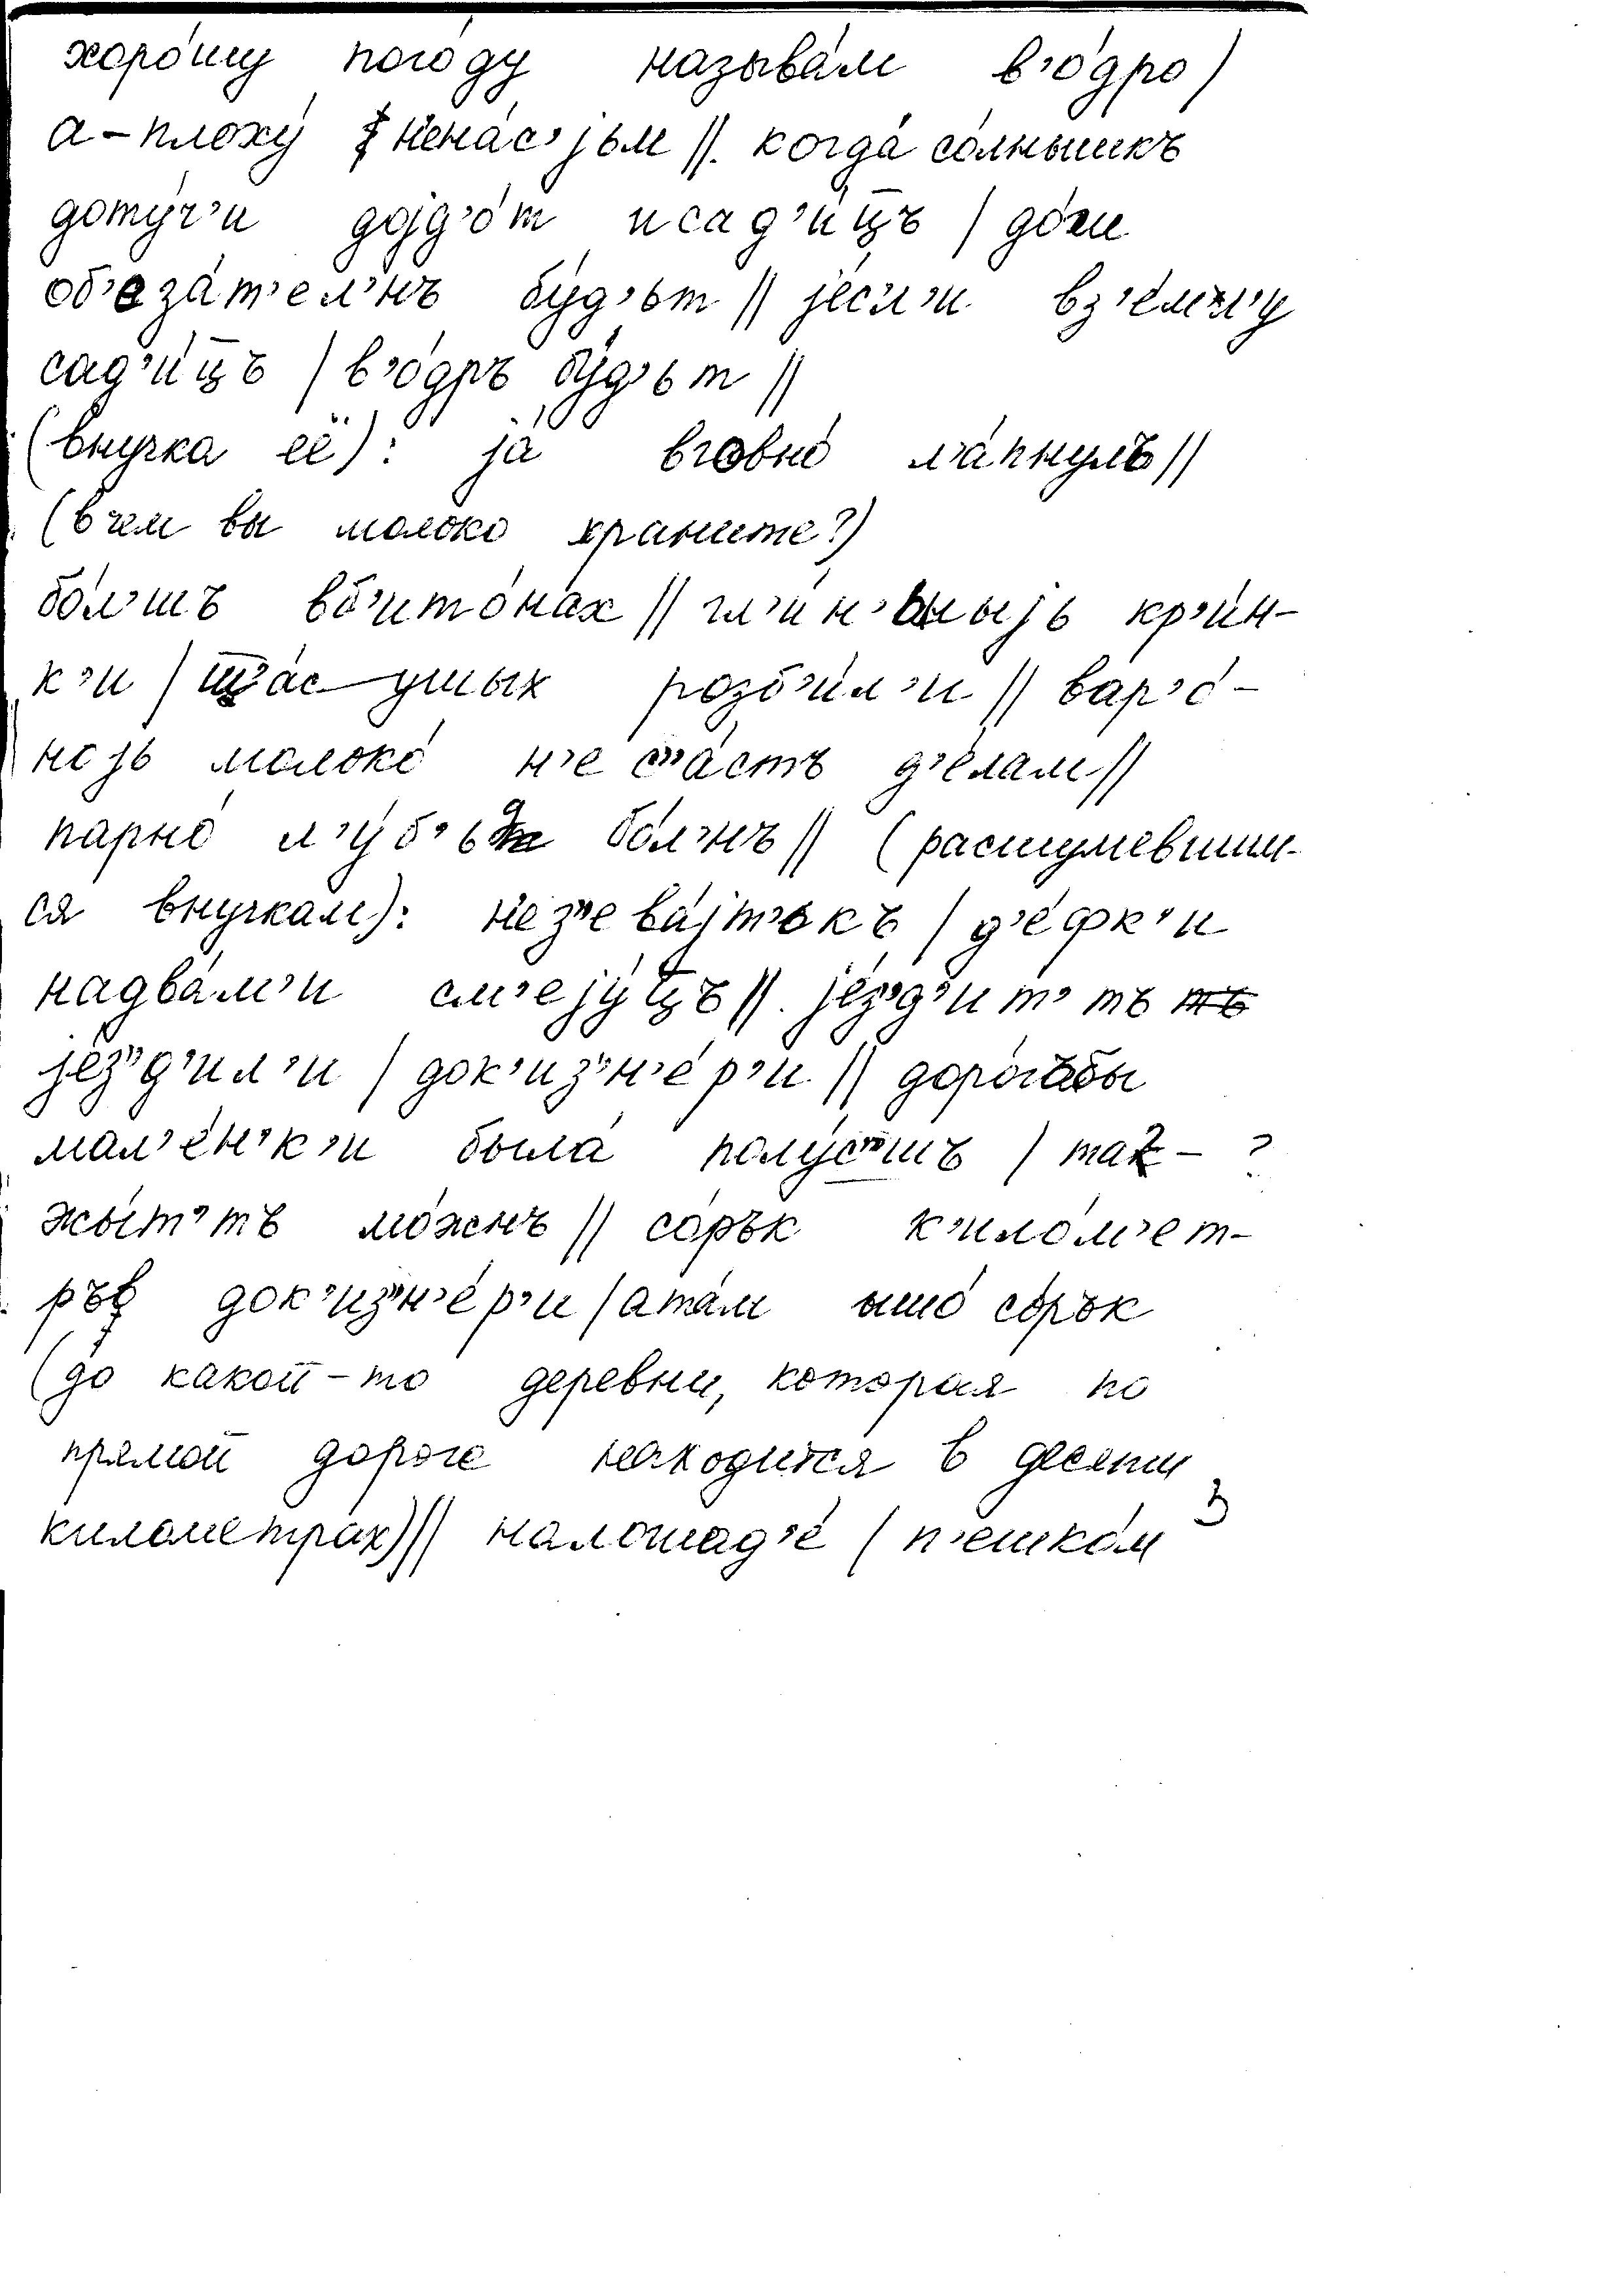 хоро́шу пого́ду называ́м в'о́дро /
а-плоху́ н'ена́с'јьм //. когда́ со́лнышкъ
доту́ч'и дојд'о́т исад'и́ц̄ъ / до́ш
об'еза́т'ел'нъ бу́д'ьт // је́сл'и вз'е́мл'у
сад'и́ц̄ъ / в'о́дръ бу́д'ьт //
(внучка её): ја́ вговно́ л'а́пнулъ //
(в чем вы молоко храните?)
бо́л'шъ вб'ито́нах // гл'и́н'ьныјь кр'и́н-
к'и / ш̄'ас ушых розб'и́л'и // вар'о́-
нојь молоко́ н'е с'а́стъ д'е́лам //
парно́ л'у́б'ьд бо́л'нъ // (расшумевшим-
ся внучкам): н'ез'ева́јт'ькъ / д'е́фк'и
надва́м'и см'еју́ц̄ъ //. је́з'д'ит' тъ
је́з'д'ил'и / док'из'н'е́р'и // доро́гъбы
мал'е́н'к'и была́ полу́с'шъ / так- ?
жы́т'тъ мо́жнъ // со́рък к'ило́м'ет-
ръв док'из'н'е́р'и / ата́м ышо́ со́рък
(до какой-то деревни, которая по
прямой дороге находится в десяти
километрах) // налошад'е́ / п'ешко́м
3